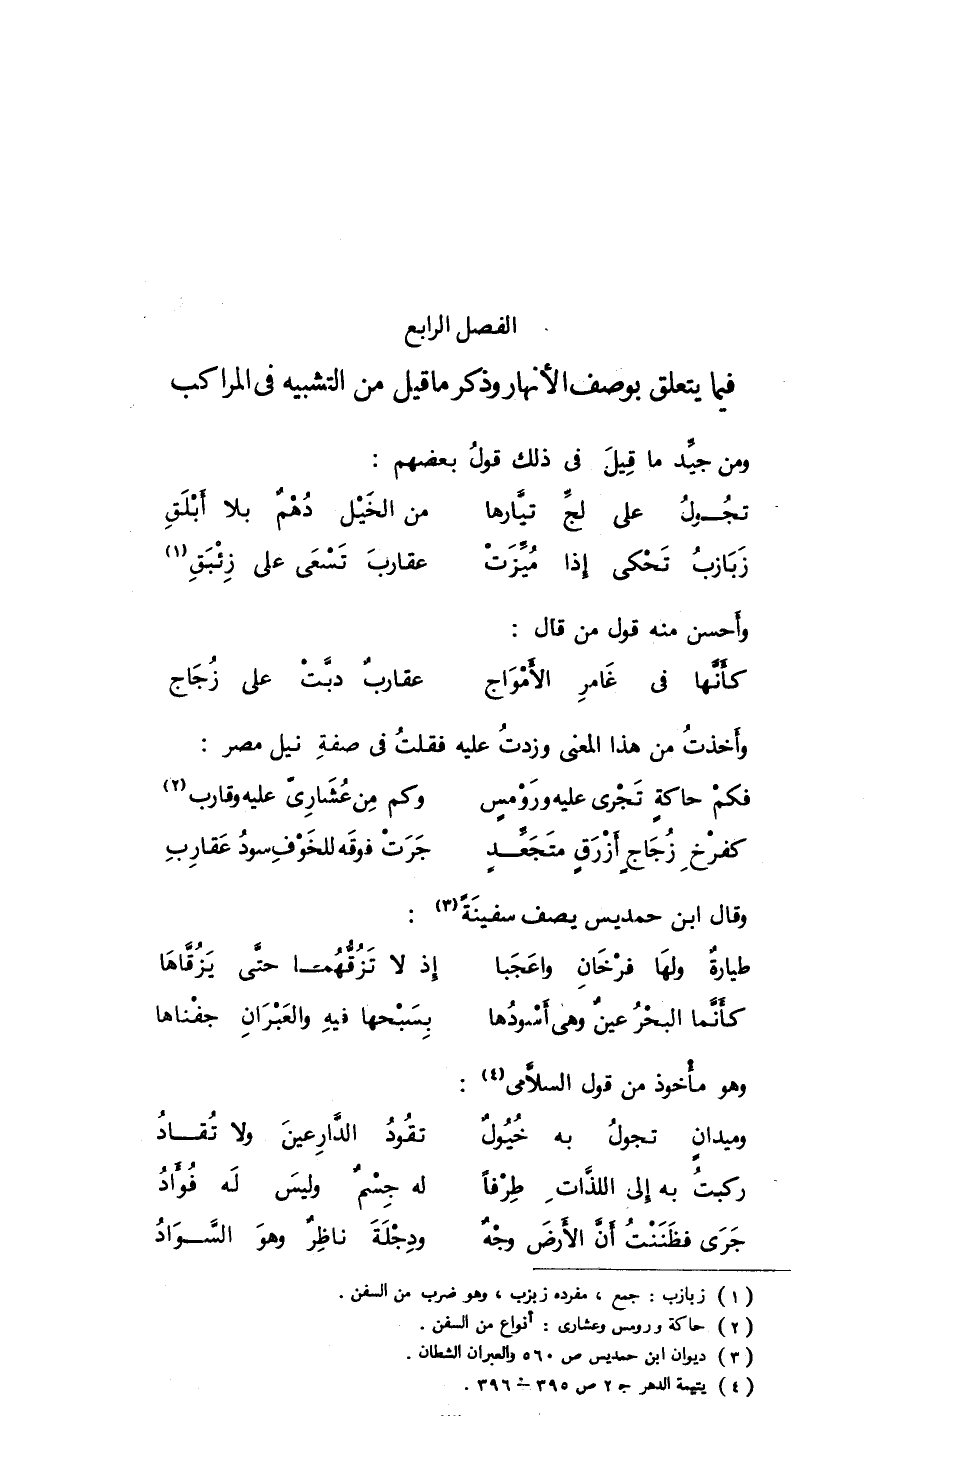 الفصل الرابع
فيما يتعلق بوصف الأنهار وذكر ماقيل من التشبيه فى المراكب
ومن جيِّد ما قِيلَ فى ذلك قولُ بعضهم :
تجُـــولُ على لجِّ تيَّارها من الخَيْل دُهْمٌ بلا أَبْلَقِ
زَبَازبُ تَحْكى إذا مُيِّزَتْ عقاربَ تَسْعَى على زِئْبَقِ (١)
وأَحسن منه قول من قال :
كأَنَّها فى غَامرِ الأَمْوَاج عقاربٌ دبَّتْ على زُجَاج
وأَخذتُ من هذا المعنى وزدتُ عليه فقلتُ فى صفةِ نيل مصر :
فكمْ حاكةٍ تَجْرى عليه ورَوْمسٍ وكم مِن عُشَارِىّ عليه وقارب (٢)
كفرْخِ زُجَاجٍ أَزْرَقٍ متَجَعِّـــدٍ جَرَتْ فوقَه للخَوْفِ سودُ عَقارِبِ
وقال ابن حمديس يصف سفينَةً (٣) :
طيارةٌ ولهَا فرْخَانِ واعَجَبا إذ لا تَزُقُّهُمـــا حتَّى يَزُقَّاهَا
كأَنَّما البحْرُ عينٌ وهى أَسْودُها بِسَبْحها فيهِ والعَبْرَانِ جفْناها
وهو مأْخوذ من قول السلاَّمى (٤) :
وميدانٍ تجولُ به خُيُولٌ تقُودُ الدَّارِعينَ ولا تُقـــادُ
ركبتُ به إلى اللذَّاتِ طِرْفاً له جِسْمٌ وليسَ لَه فُؤَادُ
جَرَى فظَنَنْتُ أَنَّ الأَرضَ وجْهٌ ودِجْلَةَ ناظِرٌ وهوَ السَّـــوَادُ
(١) زبازب : جمع ، مفرده زبزب ، وهو ضرب من السفن .
(٢) حاكة ورومس وعشارى : أنواع من السفن .
(٣) ديوان ابن حمديس ص ٥٦٠ والعبران الشطان .
(٤) يتيمة الدهر ج ٢ ص ٣٩٥ – ٣٩٦ .